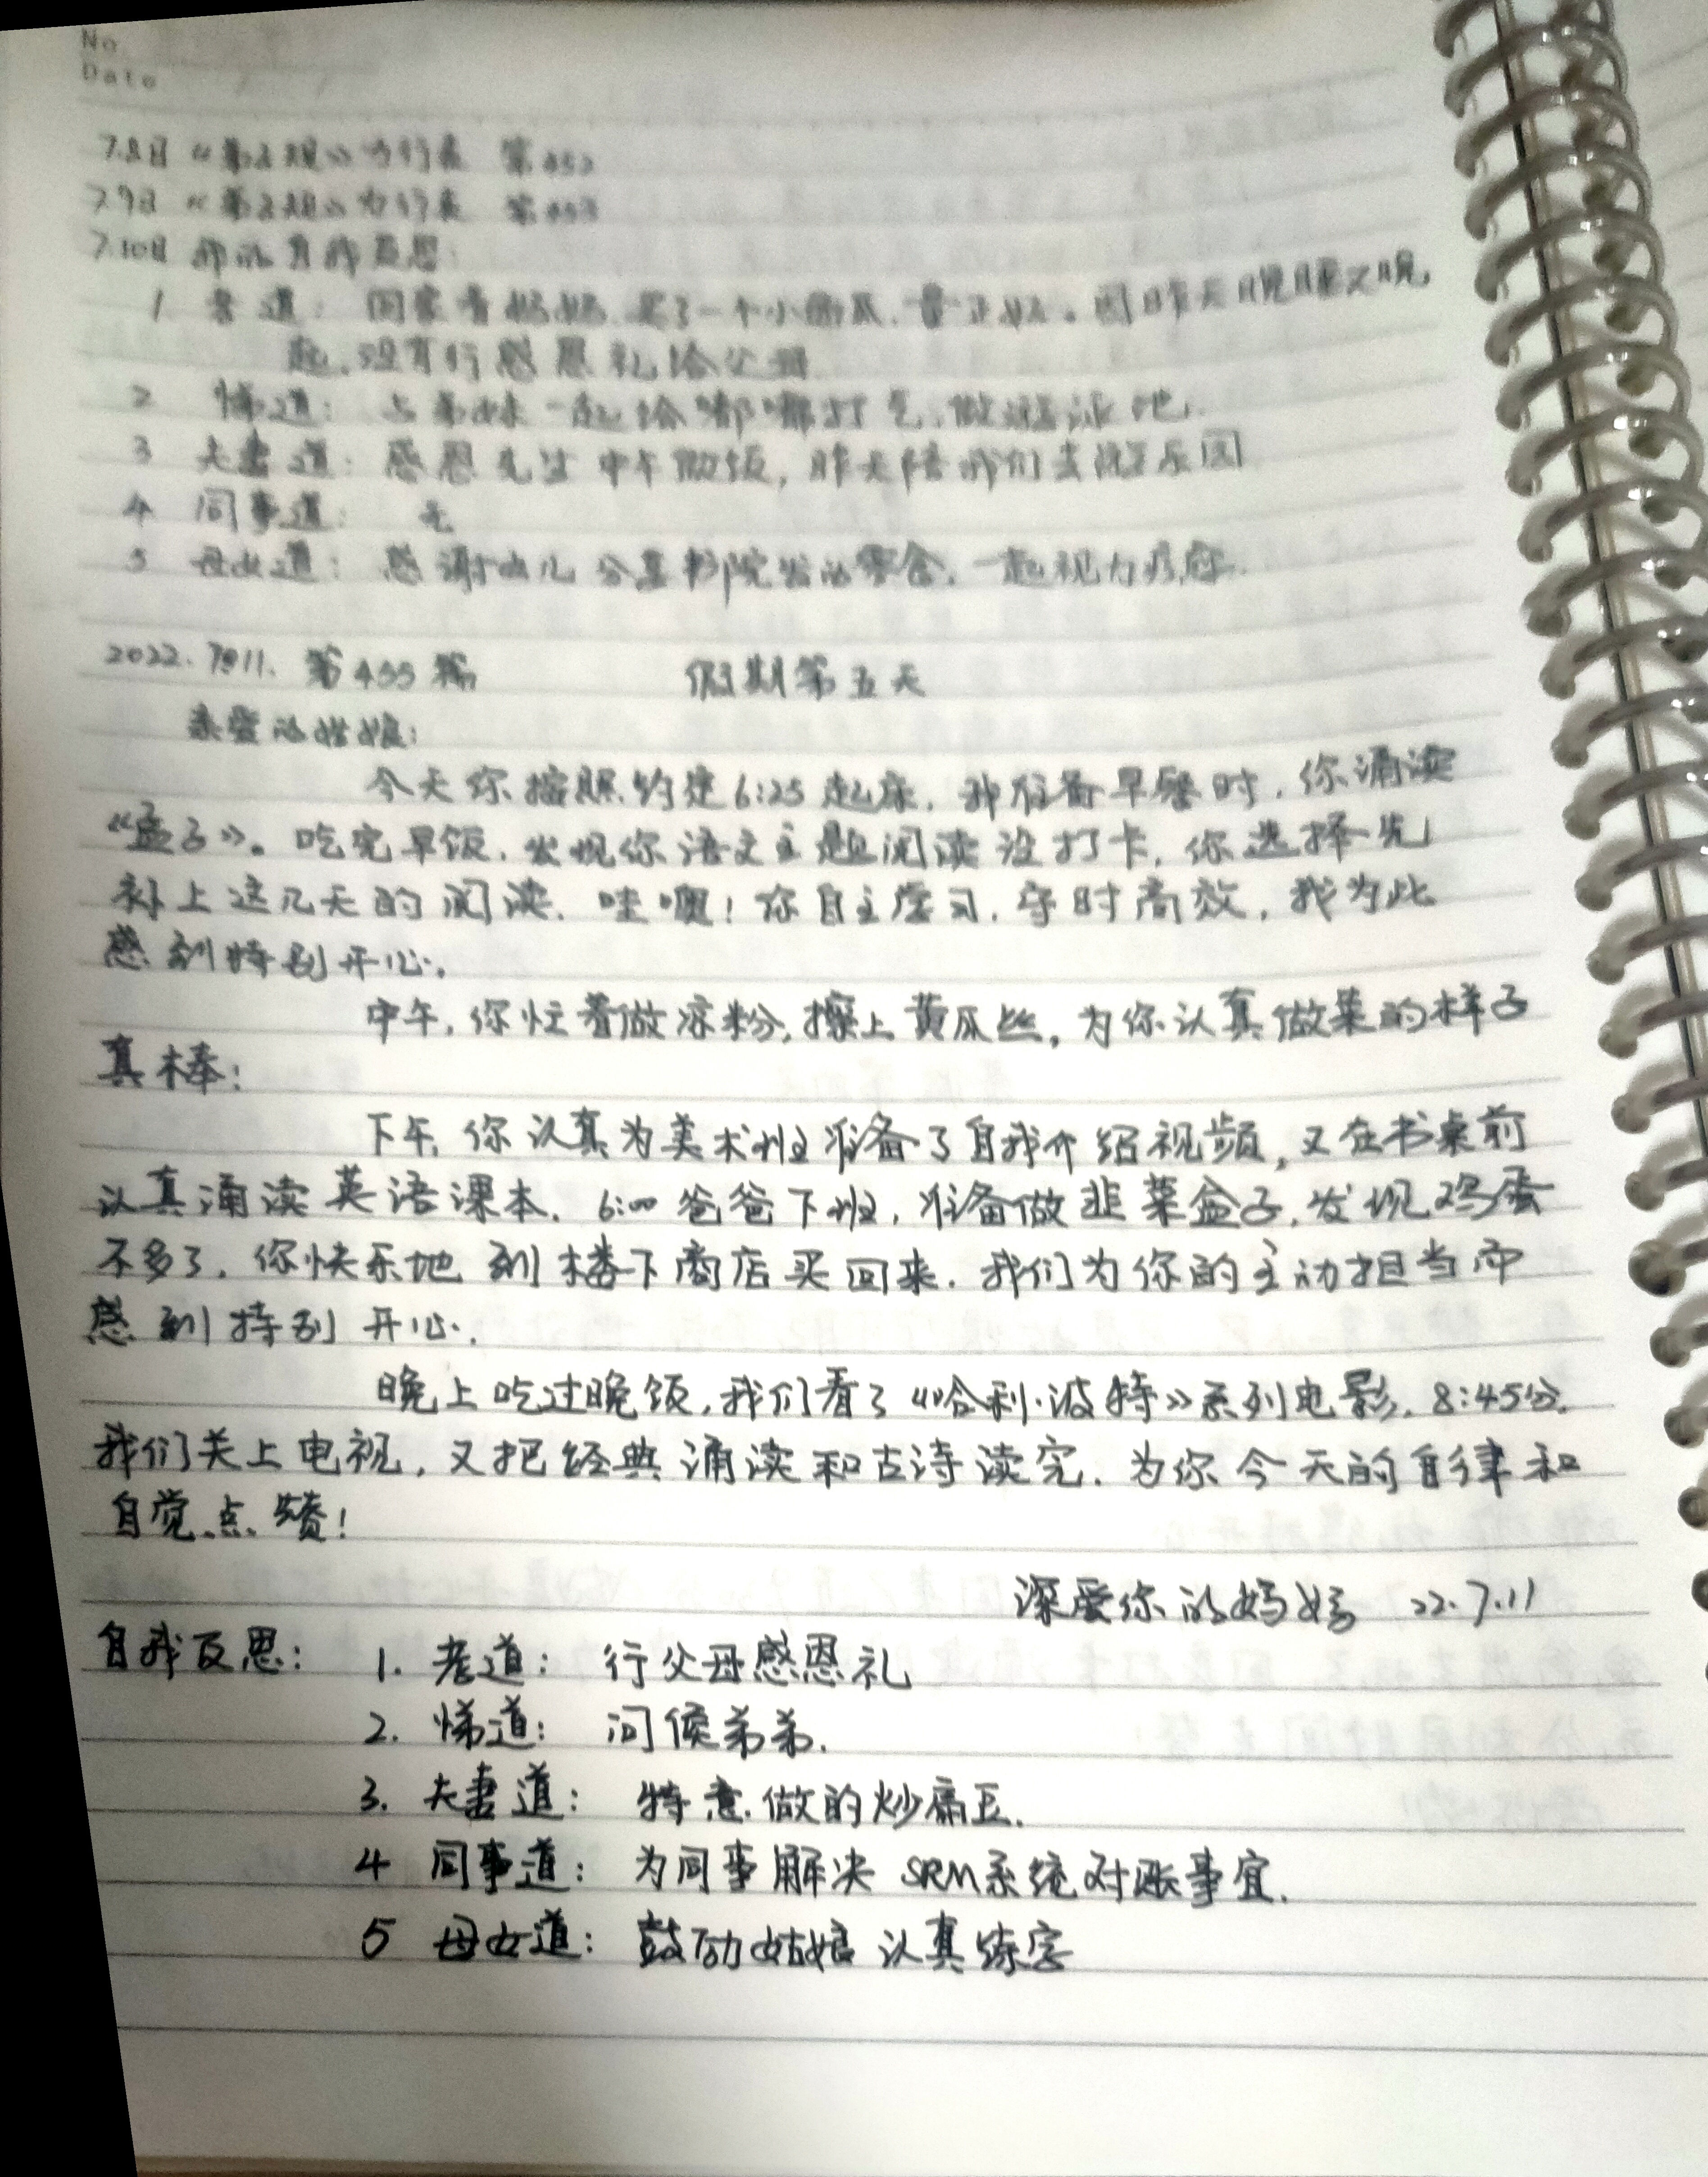 No
Date
7.8日 《弟子规》力行表 第452
7.9日 《弟子规》力行表 第453
7.10日 我的自我反思:
1 孝道: 回家看妈妈,买了一个小西瓜, 因昨天晚睡又晚,
起,没有行感恩礼给父母
2 悌道: 与弟妹一起给嘟嘟打气,做游泳池.
3 夫妻道: 感恩先生中午做饭,昨天陪我们去游乐园
4 同事道: 无
5 母女道: 感谢女儿分享书院发的零食,一起视力疗愈.
2022.7月11. 第455篇 假期第五天
亲爱的姑娘:
今天你按照约定6:25起床,我准备早餐时,你诵读
《孟子》。吃完早饭,发现你语文主题阅读没打卡,你选择先
补上这几天的阅读.哇噢!你自主学习,守时高效,我为此
感到特别开心.
中午,你忙着做凉粉,擦上黄瓜丝,为你认真做菜的样子
真棒!
下午,你认真为美术班准备了自我介绍视频,又在书桌前
认真诵读英语课本.6:00爸爸下班,准备做韭菜盒子,发现鸡蛋
不多了,你快乐地到楼下商店买回来.我们为你的主动担当而
感到特别开心.
晚上吃过晚饭,我们看了《哈利·波特》系列电影.8:45分,
我们关上电视,又把经典诵读和古诗读完.为你今天的自律和
自觉点赞!
深爱你的妈妈 22.7.11
自我反思: 1. 孝道: 行父母感恩礼
2. 悌道: 问候弟弟.
3. 夫妻道: 特意做的炒扁豆.
4 同事道: 为同事解决SRM系统对账事宜.
5 母女道: 鼓励姑娘认真练字